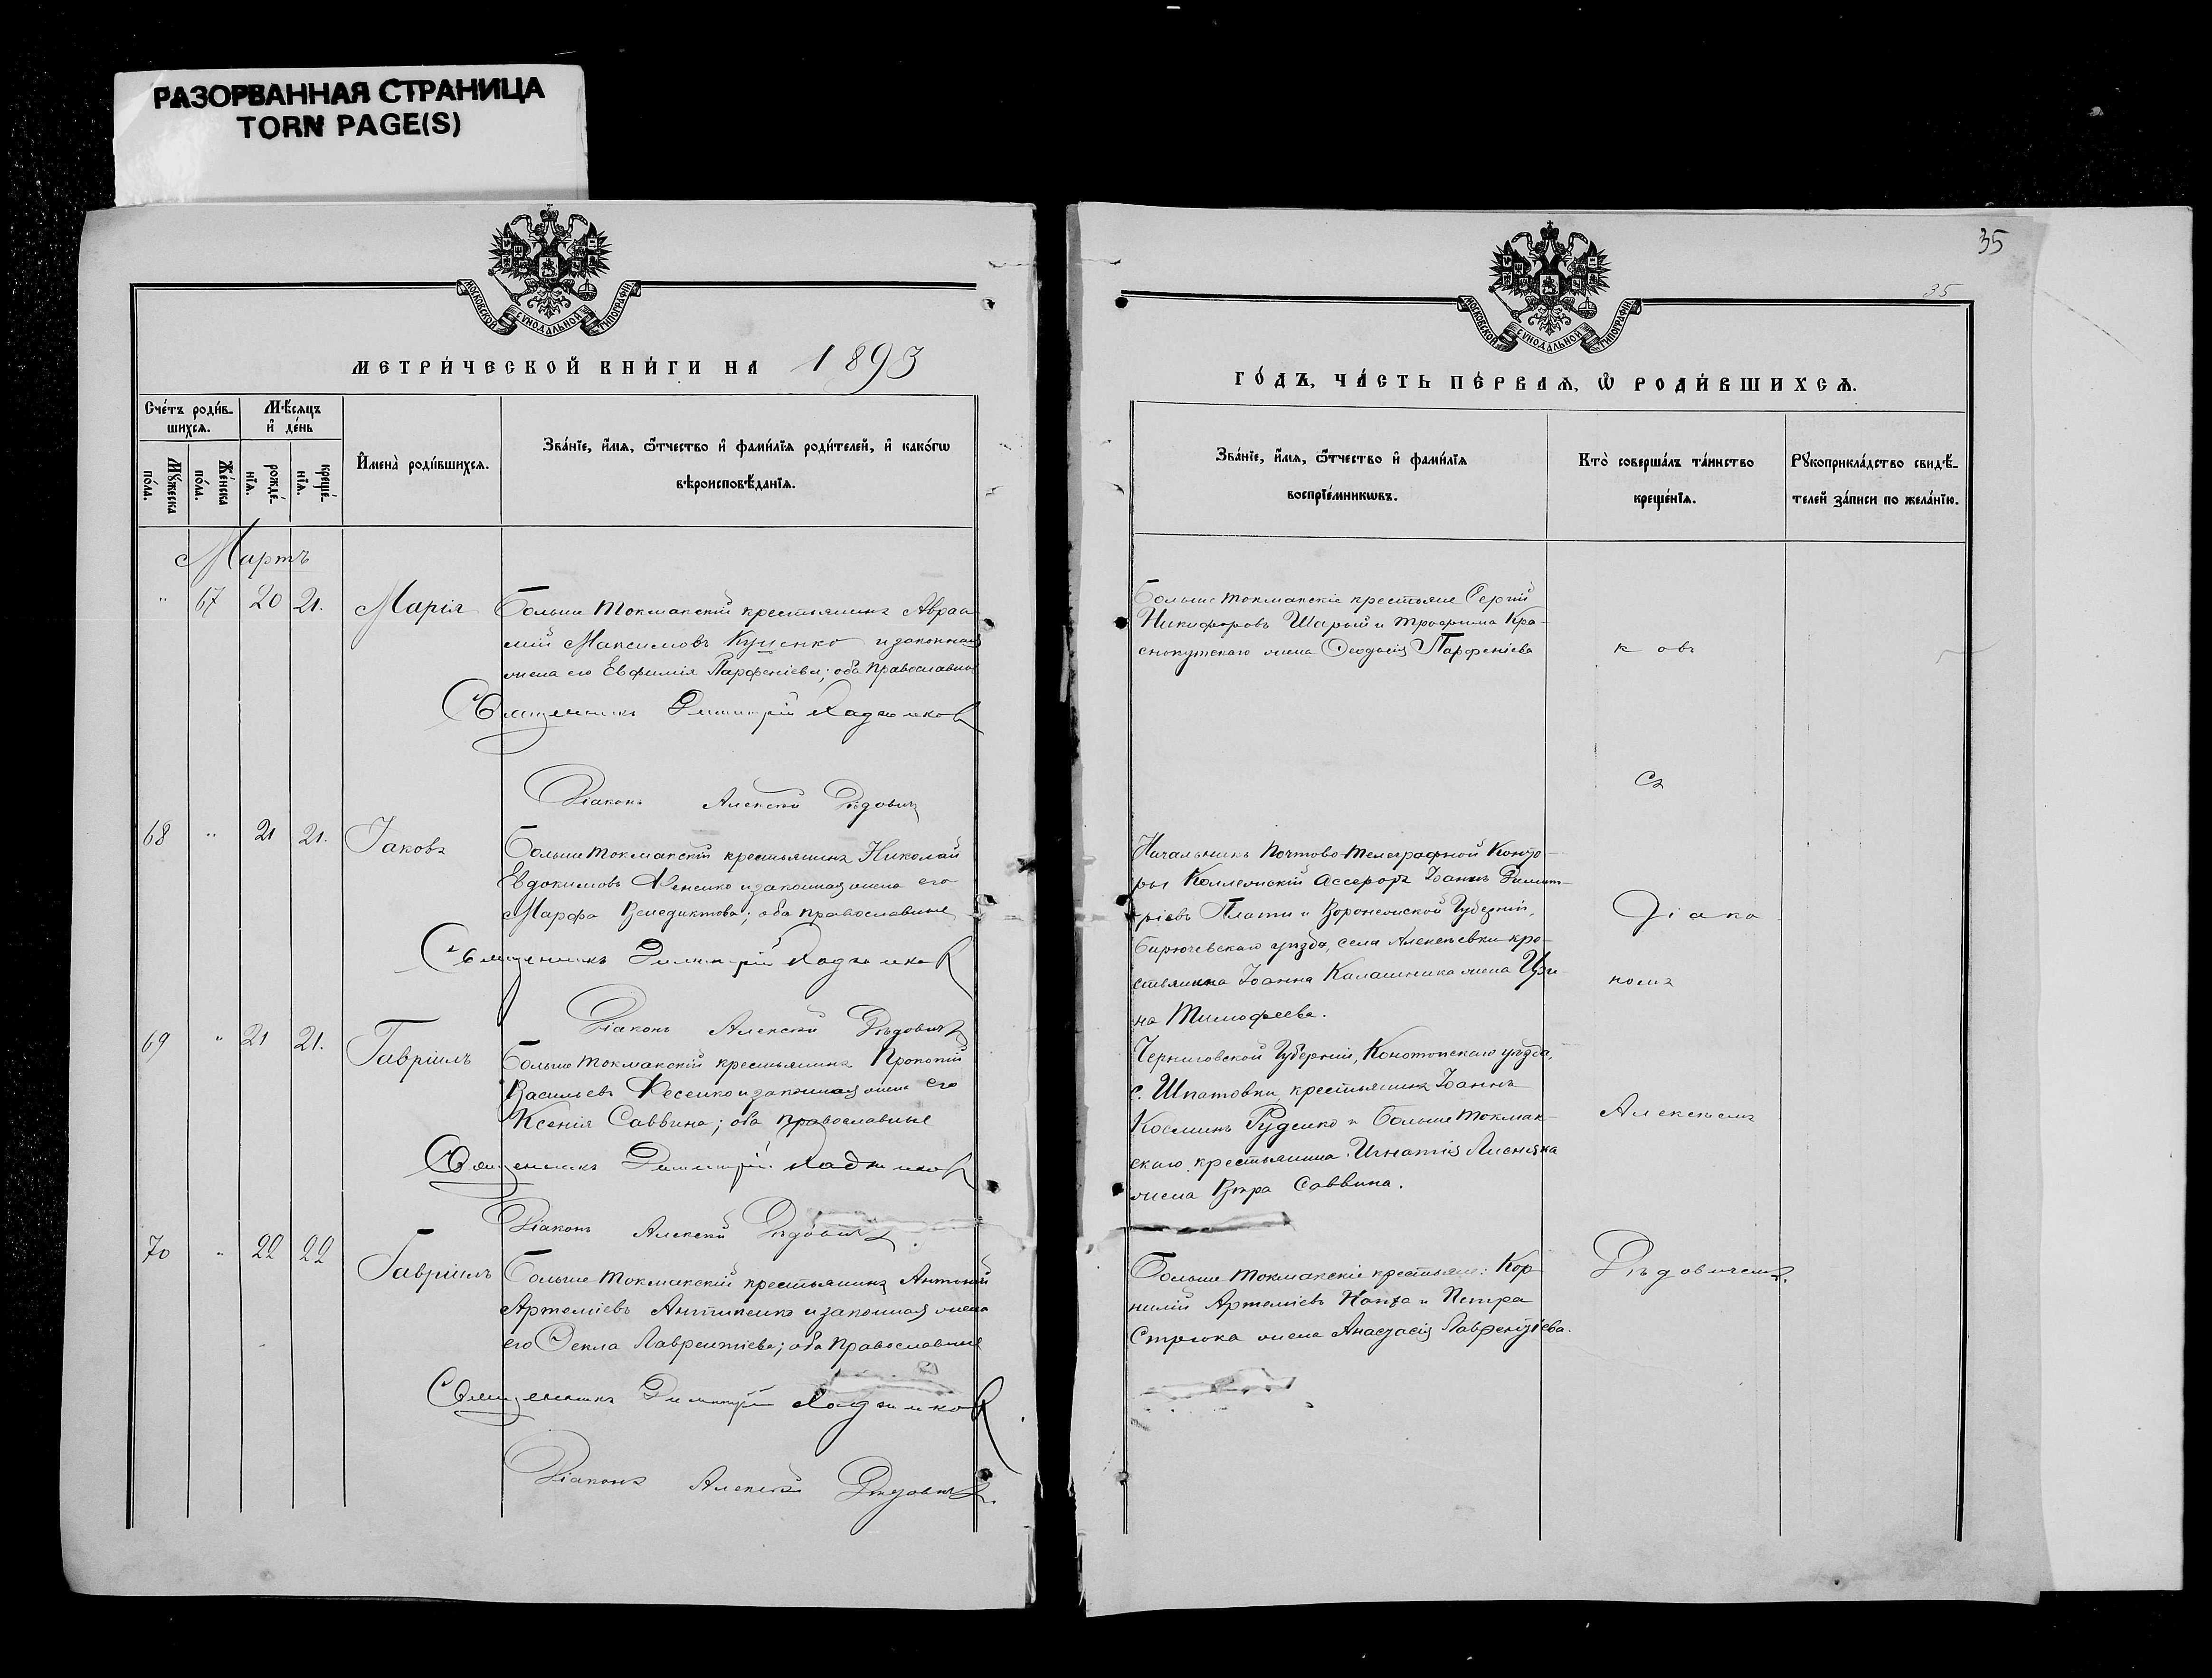 РАЗОРВАННАЯ СТРАНИЦА
TORN PAGE(S)
МОСКОВСКОЙ СѴНОДАЛЬНОЙ ТИПОГРАФІИ
МЕТРИ́ЧЕСКОЙ КНИ́ГИ НА 1893
Сче́тъ роди́в-
шихсѧ.
Мѣ́сѧцъ
и҆ де́нь
Мꙋ́жеска
по́ла.
Же́нска
по́ла.
рожде́-
нїѧ.
креще́-
нїѧ.
И҆мена̀ роди́вшихсѧ.
Зва́нїе, и҆́мѧ, ѻ҆́тчество и҆ фами́лїѧ роди́телей, и҆ како́гѡ
вѣроисповѣ́данїѧ.
Мартъ
" 67 20 21. Марія
Больше Токмакскій крестьянинъ Авраа-
мій Максимовъ Куценко и законная
жена его Евфимія Парфеніева; оба Православные
Священникъ Димитрій
Діаконъ Алексѣй Дѣдовичъ
68 " 21 21. Іаковъ
Больше Токмакскій крестьянинъ Николай
Евдокимовъ и законная жена его
Марфа Венедиктова; оба православные
Священникъ Димитрій
Діаконъ Алексѣй Дѣдовичъ
69 " 21 21. Гавріилъ
Больше Токмакскій крестьянинъ Прокопій
Васильевъ Фесенко и законная жена его
Ксенія Саввина; оба православные
Священникъ Димитрій
Діаконъ Алексѣй Дѣдовичъ
70 " 22 22 Гавріилъ
Больше Токмакскій крестьянинъ Антоній
Артеміевъ Антипенко и законная жена
его Ѳекла Лаврентіева; оба Православные
Священникъ Димитрій
Діаконъ Алексѣй Дѣдовичъ.
35
35
МОСКОВСКОЙ СѴНОДАЛЬНОЙ ТИПОГРАФІИ
ГО́ДЪ, ЧА́СТЬ ПЕ́РВАѦ, Ѡ҆ РОДИ́ВШИХСѦ.
Зва́нїе, и҆́мѧ, ѻ҆́тчество и҆ фами́лїѧ
воспрїе́мникѡвъ.
Кто̀ соверша́лъ та́инство
креще́нїѧ.
Рꙋкоприкла́дство свидѣ́-
телей за́писи по жела́нїю.
Больше Токмакскіе крестьяне Сергій
Никифоровъ Шарый и Трофима Кра-
снокутскаго жена Ѳеодосія Парфеніева
к овъ
съ
Начальникъ Почтово-Телеграфной Конто-
ры Коллежскій Ассесоръ Іоаннъ Димит-
ріевъ и Воронежской Губерніи,
Бирюченскаго уѣзда, села Алексѣевки кре-
стьянина Іоанна Калашника жена Ири-
на Тимофеева.
Діако
номъ
Черниговской Губерніи, Конотопскаго уѣзда,
с. крестьянинъ Іоаннъ
Косминъ Руденко и Больше Токмак-
скаго крестьянина Игнатія
жена Вѣра Саввина.
Алексѣемъ
Больше Токмакскіе крестьяне: Кор-
нилій Артеміевъ и Петра
жена Анастасія Лаврентіева.
Дѣдовичемъ.